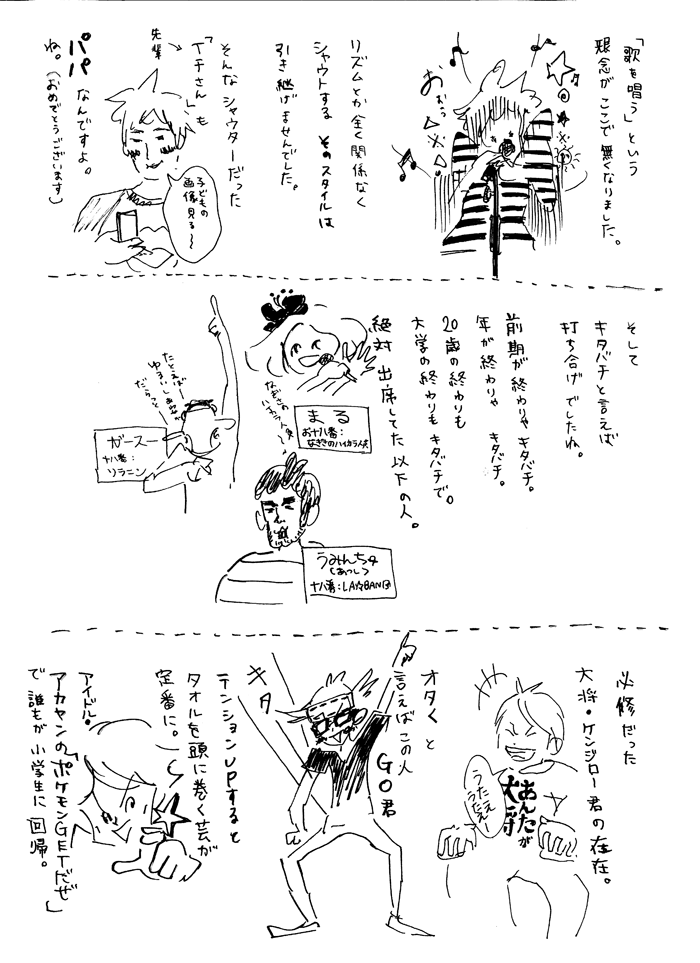 「歌を唱う」という
概念がここで無くなりました。
おぉっ
リズムとか全く関係なく
シャウトする そのスタイルは
引き継げませんでした。
そんなシャウターだった
「Tチさん」も
先輩
パパなんですよ。
ね。(おめでとうございます)
子どもの
画像見る〜
そして
キタバチと言えば
打ち合げでしたね。
前期が終わりゃキタバチ。
年が終わりゃ キタバチ。
20歳の終わりも
大学の終わりもキタバチで。
絶対 出席してた 以下の人。
なぎさの
ハイカラ人魚〜
まる
お十八番:
なぎさのハイカラ人魚
たとえば
ゆるい
だらっと
ガースー
十八番:
ソラニン
うみんちゅ
(あつし)
十八番:LA☆BAN団
必修だった
大将・ケンジロー君の存在。
うたえ〜
うたえ〜
あんたが
大将
オタくと
言えばこの人
GO君
キタ
テンションUPすると
タオルを頭に巻く芸が
定番に。
アイドル。
アカヤンの「ポケモンGETだぜ」
で 誰もが小学生に回帰。